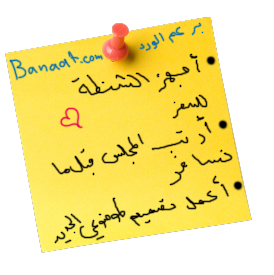 برعم الورد
Banaat.com
أجهز الشنطة
للسفر
أرتب المجلس قبلما
نسافر
أكمل تصميم موضوعي الجديد